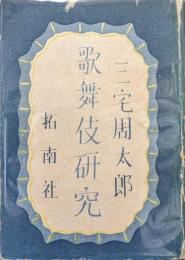 三宅周太郎
歌舞伎研究
拓南社